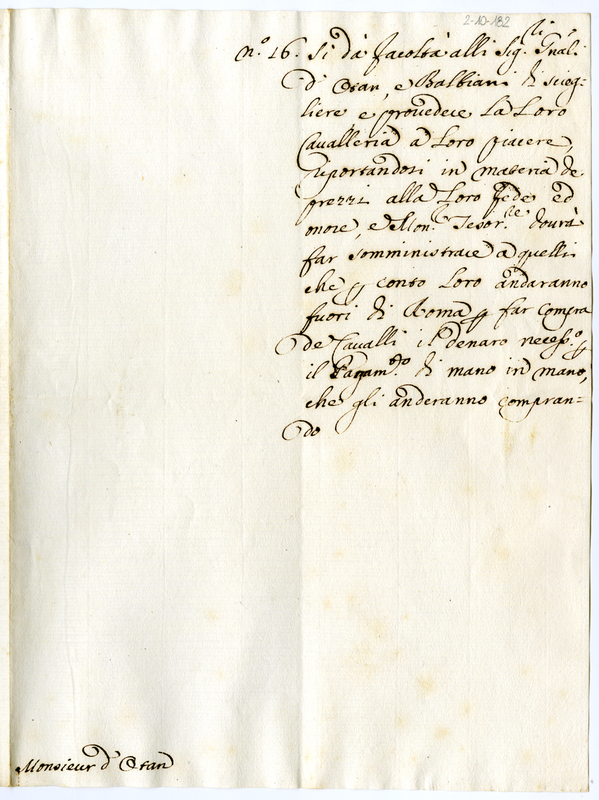 2-10-182
n.º 16. Si dà facoltà alli Sig.ri Gnãli
d'Otan, e Balbiani di scieg=
liere e provedere la Loro
Cavalleria a Loro piacere,
riportandosi in materia de
prezzi alla Loro fede ed
onore, e Mon.r Tesor.re dourà
far somministrare a quelli
che p conto Loro anderanno
fuori di Roma p far compra
de Cavalli il denaro necess.º p
il Pagam.to di mano in mano,
che gli anderanno compran=
do
Monsieur d'Otan